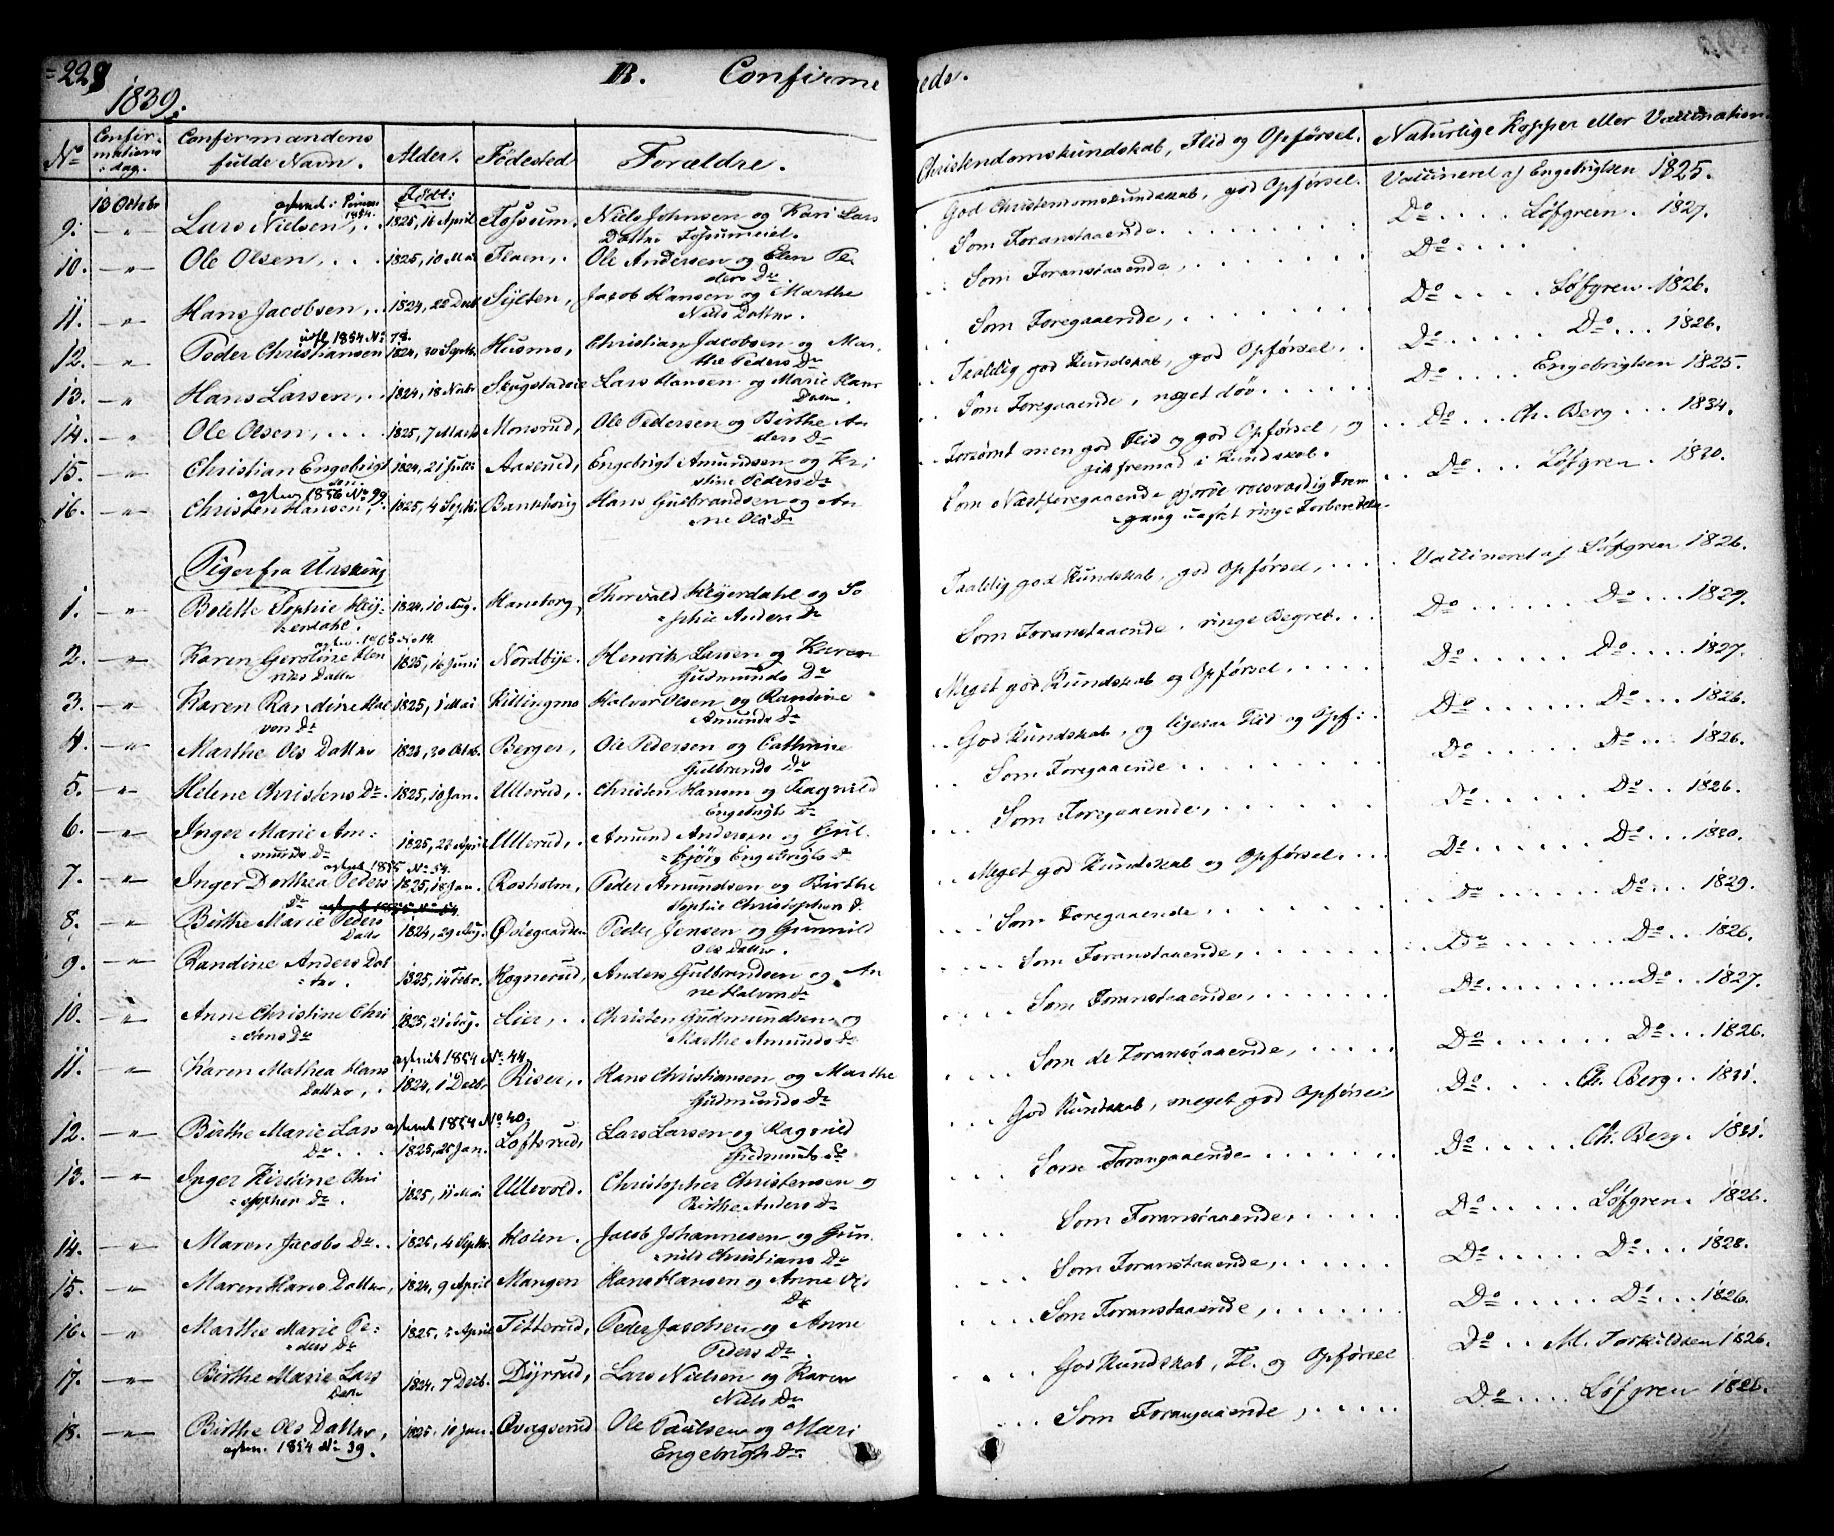 228
1839.
B. Confirmerede.
No Confirmations dag. Confirmandens fulde Navn. Alder. Fødested Forældre. Christendomskundskab, Flid og Opførsel. Naturlige Kopper eller Vaccination.
13 Octobr Født:
9. " Lars Nielsen, 1825, 16 April Fossum, Niels Johnsen og Kari Lars God Christendomskundskab, god Opførsel. Vaccineret af Engebrigtsen 1825.
1854. Datter Fossumeiel.
10. " Ole Olsen, 1825, 10 Mai Ole Andersen og Elen Pe Som Foranstaaende. Do Løfgreen. 1827.
ders Dr
11. " Hans Jacobsen, 1824, Decb Sylten, Jacob Hansen og Marthe Som Foranstaaende, Do
Niels Datter.
udfl 1854 No 78.
12. " Peder Christiansen 1824, 30 Septb. Husmo, Christian Jacobsen og Mar- Som Foregaaende, Do Løfgren 1826.
the Peders Dr
13. " Hans Larsen, 1824, 18 Novbr Lars Hansen og Marie Hans Taalelig god Kundskab, god Opførsel, Do Do 1826.
Datter.
14. " Ole Olsen, 1825, 7 Marts Monsrud, Ole Pedersen og Birthe An Som Foregaaende, noget døv. Do Engebrigtsen 1825.
ders Dr
15. " Christian Engebrigt 1824, 21 Juli Aaserud, Engebrigt Amundsen og Kri Forsømt men god Flid og god Opførsel, og Do Ch. Berg 1834.
sen. stine Peders Dr gik fremad i Kundskab.
1856 No 99
16. " Christen Hansen, 1825, 4 Septb. Hans Gulbrandsen og An Som Næstforegaaende gjorde Frem Do Løfgren 1830.
ne Ols Dr gang ringe Forberedelse
Piger fra Urskoug
1. " Bolette Sophie Hey 1824, 10 Aug. Haneborg, Thorvald Heyerdahl og So Taalelig god Kundskab, god Opførsel, Vaccineret af Løfgren 1826.
erdahl. phie Anders Dr
No 14.
2. " Karen Geroline Hen 1825, 16 Juni Nordbye. Henrik Larsen og Karen Som Foranstaaende. ringe Begreb. Do Do 1829.
riks Datter Gudmunds Dr
3. " Karen Randine Hal 1825, 1 Mai Killingmo Halvor Olsen og Randine Meget god Kundskab og Opførsel, Do Do 1827.
vors Dr Amunds Dr
4. " Marthe Ols Datter 1824, 30 Octb. Berger, Ole Pedersen og Cathrine God Kundskab, og ligesaa Flid og Opf: Do Do 1826.
Gulbrands Dr
5. " Helene Christens Dr. 1825, 10 Jan. Ullerud, Christen Hansen og Ragnild Som Foregaaende Do Do 1826.
Engebrigts Dr
6. " Inger Marie Am- 1825, April Ullerud, Amund Andersen og Gul- Som Foregaaende, Do Do 1826.
munds Dr bjørg Engebrigts Dr
1855 No 54.
7. " Inger Dorthea Peders 1825, 18 Jan. Rosholm, Peder Amundsen og Birthe Meget god Kundskab og Opførsel. Do Do 1830.
Dr Sophie Christophers D.
8. " Birthe Marie Peders 1824, 29 Aug. Ødegaarden Peder Jensen og Gunnild Som Foregaaende, Do Do 1829.
Datter Ols Datter.
9. " Randine Anders Dat 1825, 14 Febr. Rognerud, Anders Gulbrandsen og An Som Foranstaaende, Do Do 1826.
ter. ne Halvors Dr
10. " Anne Christine Chri 1825, 21 Aug. Lier, Christen Gudmundsen og Som Foranstaaende, Do Do 1827.
stens Dr Marthe Amunds Dr
1854 No 44.
11. " Karen Mathea Hans 1824, 1 Decbr Riser, Hans Christiansen og Marthe Som de Foranstaaende, Do Do 1826.
Datter, Gudmunds Dr
1854 No 40.
12. " Birthe Marie Lars 1825, Jan. Loftsrud, Lars Larsen og Ragnild God Kundskab, meget god Opførsel Do Ch. Berg 1831.
Dr Gudmunds Dr
13. " Inger Kirstine Chri 1825, 11 Mai Ullevold. Christopher Christensen og Som Forangaaende Do Ch. Berg. 1831.
stopher Dr. Birthe Anders Dr
14. " Maren Jacobs Dr. 4 Septbr. Holen. Jacob Johannesen og Gun- Som Foranstaaende, Do Løfgren. 1826.
nild Christians Dr
15. " Maren Hans Datter, 1824, 9 April Mangen Hans Hansen og Anne Ols Som Foranstaaende, Do Do 1828.
Dr
16. " Marthe Marie Pe- 1825. April Fitterud, Peder Jacobsen og Anne Som Foranstaaende, Do Do 1826.
ders Dr Peders Dr
17. " Birthe Marie Lars 1824. 7 Decb. Dyrrud, Lars Nielsen og Karen God Kundskab, Fl. og Opførsel Do M. Torkildsen 1826.
Datter Niels Dr
18. " Birthe Ols Datter, 1825. 10 Jan. Qvagserud Ole Paulsen og Mari Som Forangaaende, Do Løfgren 1826.
1854 No 39. Engebrigts Dr.